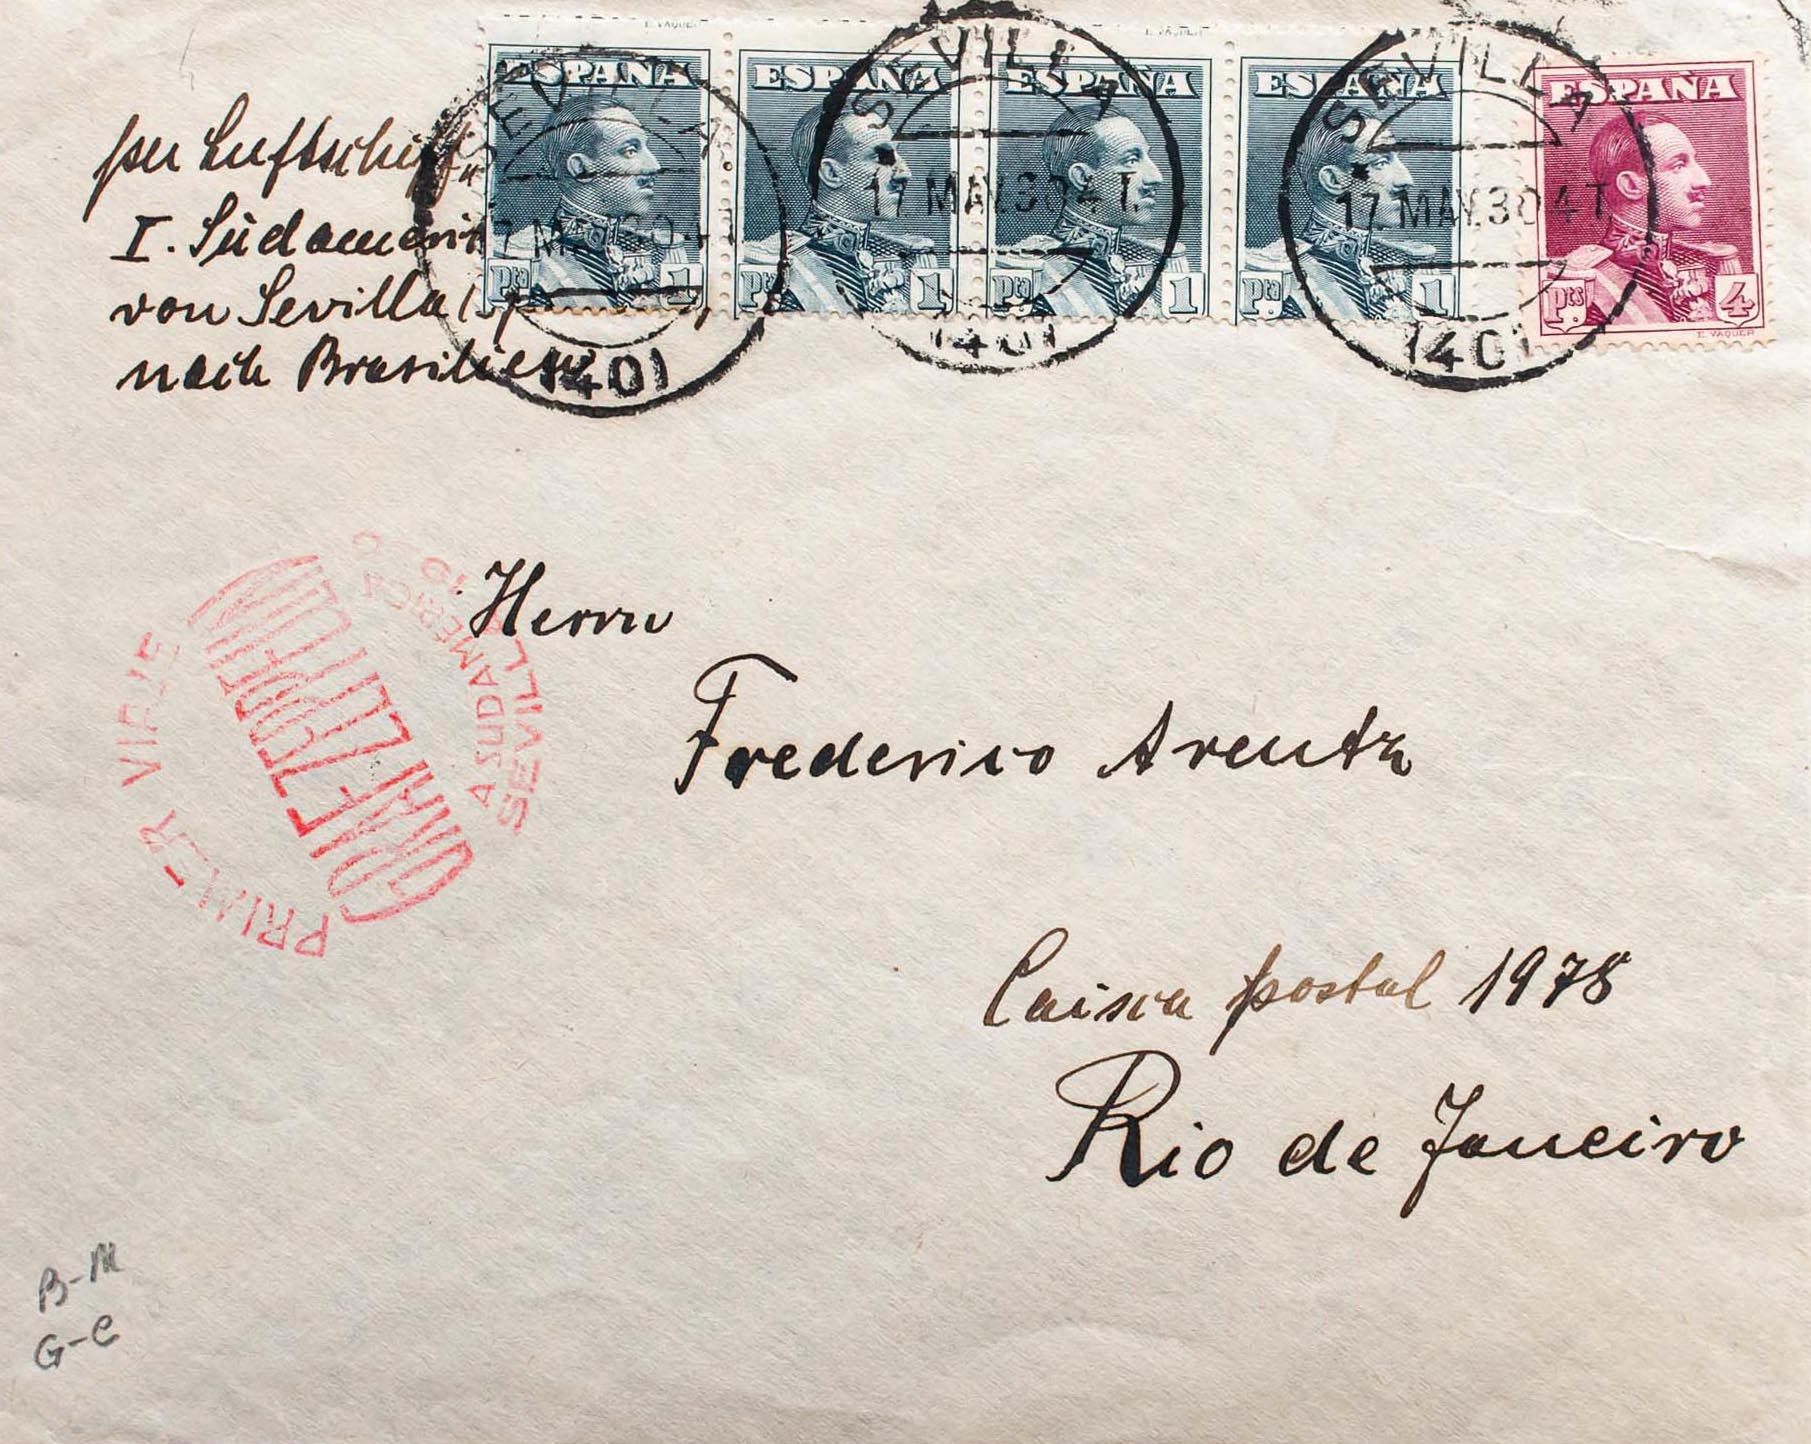 E. VAQUER
E. VAQUER
ESPAÑA
ESPAÑA
ESPAÑA
ESPAÑA
ESPAÑA
Pta 1
Pta 1
Pta 1
Pta 1
Pts 4
E. VAQUER
SEVILLA
17 MAY.30 4T
1401
SEVILLA
17 MAY.30 4T.
1401
SEVILLA
17 MAY.30 4T.
1401
per Luftschiff
I. Südameri
von Sevilla
nach Brasilien
PRIMER VIAJE
GRAF ZEPPELIN
A SUDAMERICA
SEVILLA 19
Herrn
Frederico Arentz
Caixa postal 1978
Rio de Janeiro
B-M
G-C